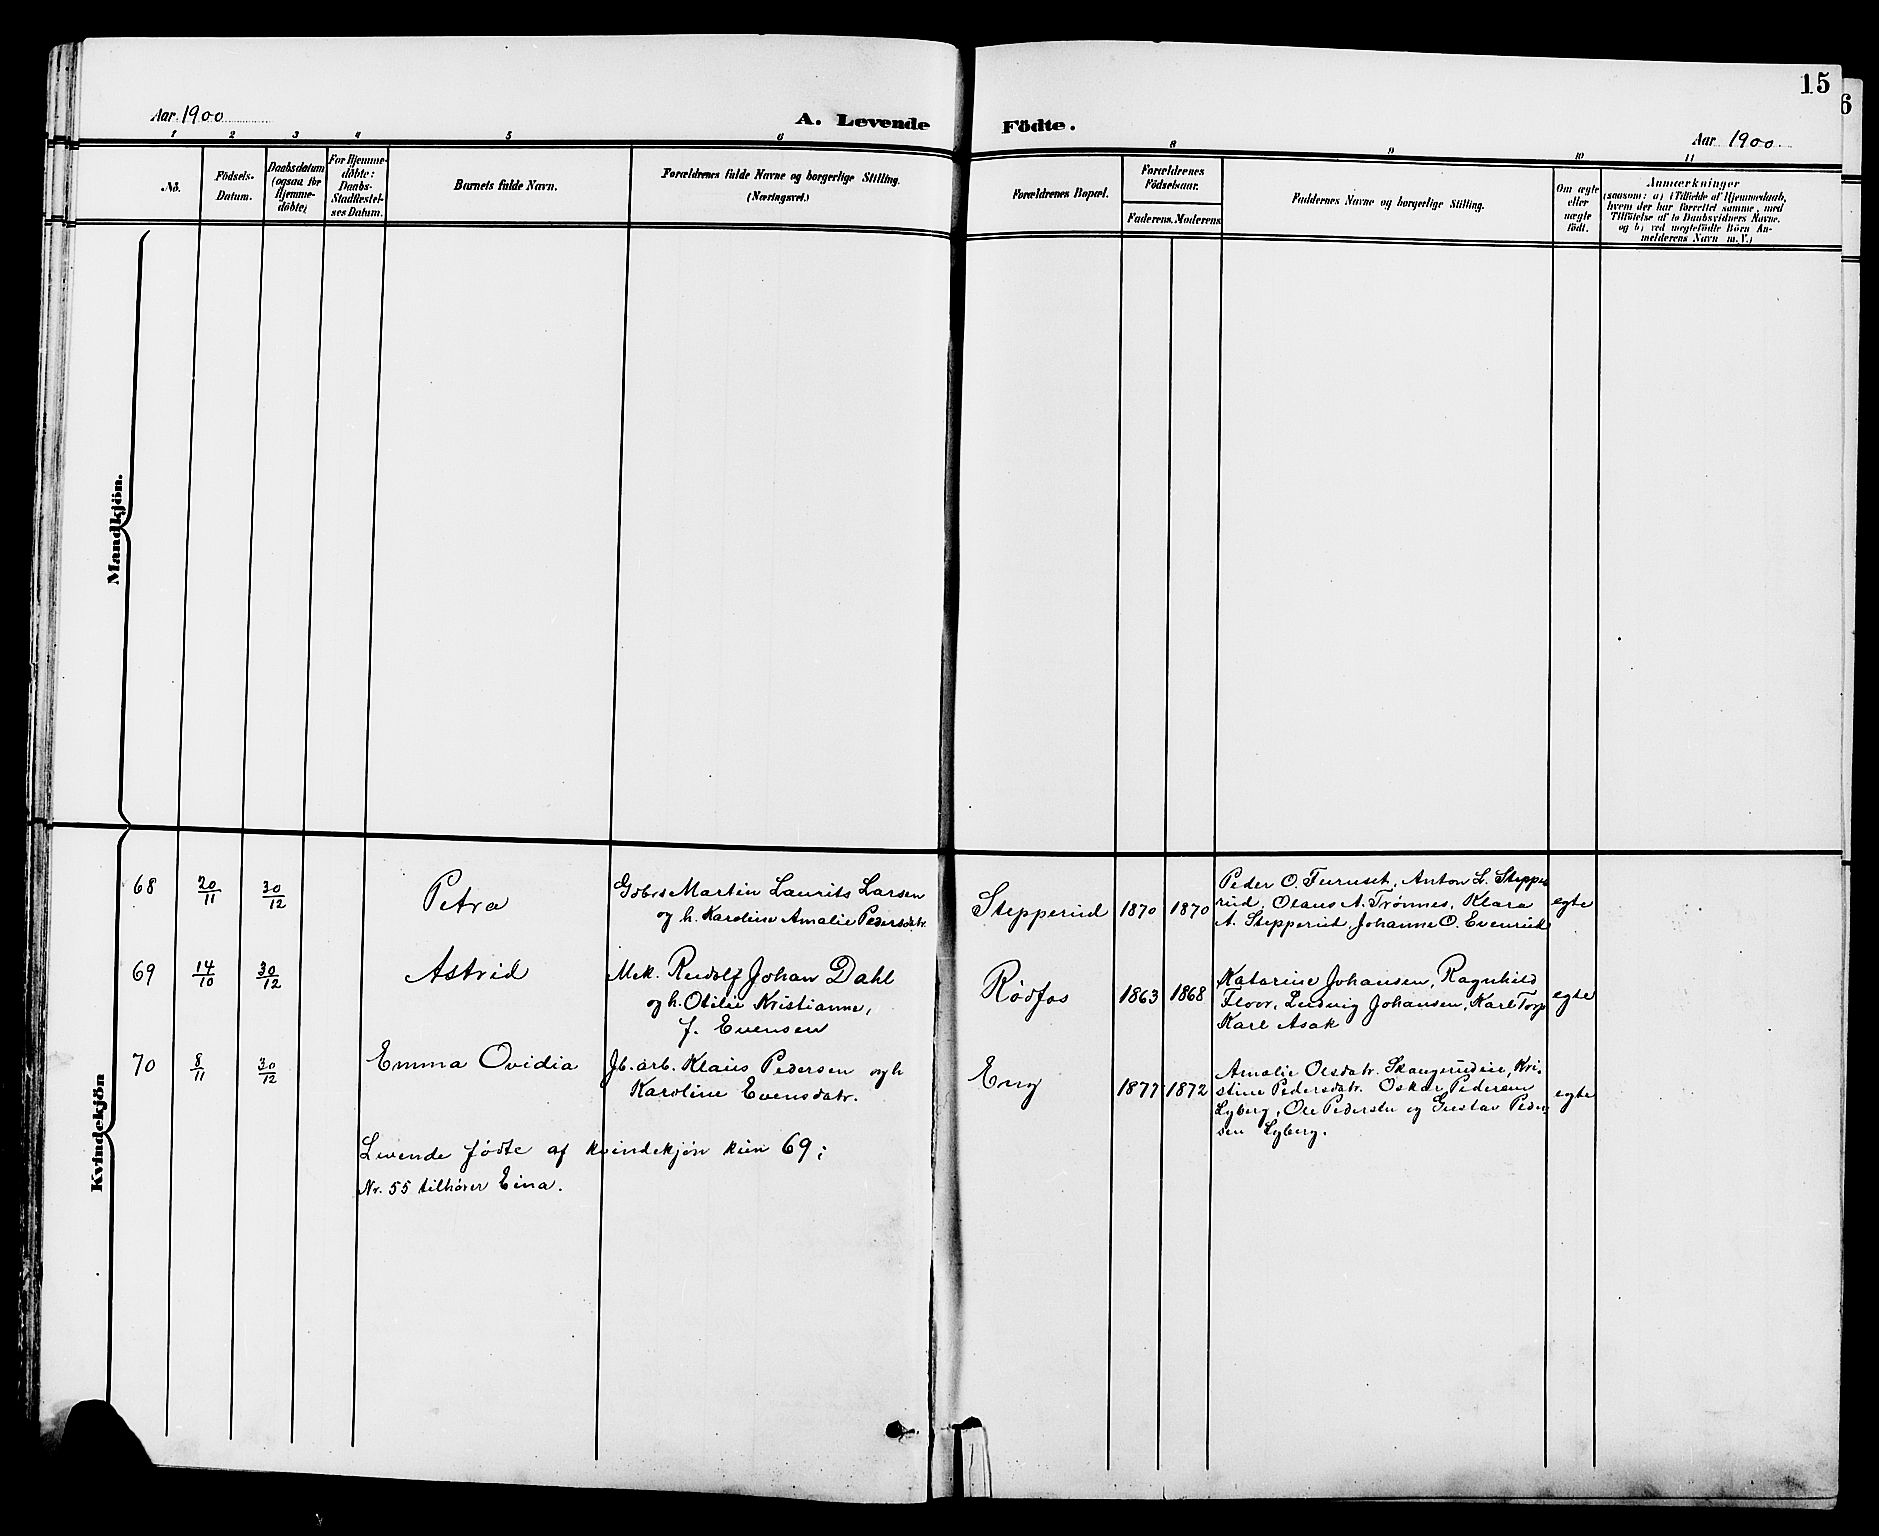 15
6
Aar 1900
A. Levende
Födte.
Aar 1900
1 2 3 4 5 6
8 9 10 11
No.
Födsels-
Datum.
Daabsdatum
(ogsaa for
Hjemme-
döbte)
For Hjemme-
döbte:
Daabs-
Stadfæstel-
ses Datum.
Barnets fulde Navn.
Forældrenes fulde Navne og borgerlige Stilling.
(Næringsvei.)
Forældrenes Bopæl.
Forældrenes
Födselsaar.
Faderens. Moderens.
Faddernes Navne og borgerlige Stilling.
Om ægte
eller
uægte
födt.
Anmærkninger
(saasom: a) i Tilfælde af Hjemmedaab,
hvem der har forrettet samme, med
Tilföielse af to Daabsvidners Navne,
og b) ved uegtefödte Börn An-
melderens Navn m. V.)
Mandkjön.
Kvindekjön
68 20/11 30/12 Petra
Gbrs Martin Laurits Larsen
og h. Karoline Amalie Pedersdatr.
Stepperud 1870 1870
Peder O. Furuset, Anton L. Steppe-
rud, Olaus A. Trønnes, Klara
A. Stepperud, Johanne O. Evenrud
egte
69 14/10 30/12 Astrid
Mek. Rudolf Johan Dahl
og h. Otilie Kristianne,
f. Evensen
Rödfos 1863 1868
Katarine Johansen, Ragnhild
Floor, Ludvig Johansen, Karl Torp
Karl Asak
egte
70 8/11 30/12 Emma Ovidia
Jb. arb. Klaus Pedersen og h
Karoline Evensdatr.
Eng 1877 1872
Amalie Olsdatr. Skaugerudeie, Kri-
stine Pedersdatr. Oskar Pedersen
Lyberg, Ole Pedersen og Gustav Peder-
sen Lyberg.
egte
Levende födte af kvindekjøn kun 69;
Nr. 55 tilhører Eina.